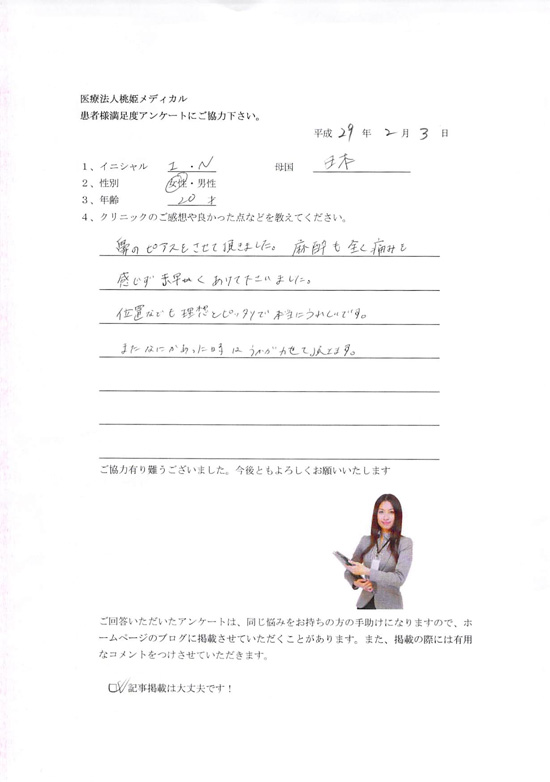 医療法人桃姫メディカル
患者様満足度アンケートにご協力下さい。
平成 29 年 2 月 3 日
1、イニシャル I・N 母国 日本
2、性別 女性・男性
3、年齢 20 才
4、クリニックのご感想や良かった点などを教えてください。
鼻のピアスをさせて頂きました。麻酔も全く痛みを
感じず素早くあけて下さいました。
位置なども理想とピッタリで本当にうれしいです。
またなにかあった時はうかがわせて頂きます。
ご協力有り難うございました。今後ともよろしくお願いいたします
ご回答いただいたアンケートは、同じ悩みをお持ちの方の手助けになりますので、ホ
ームページのブログに掲載させていただくことがあります。また、掲載の際には有用
なコメントをつけさせていただきます。
記事掲載は大丈夫です！